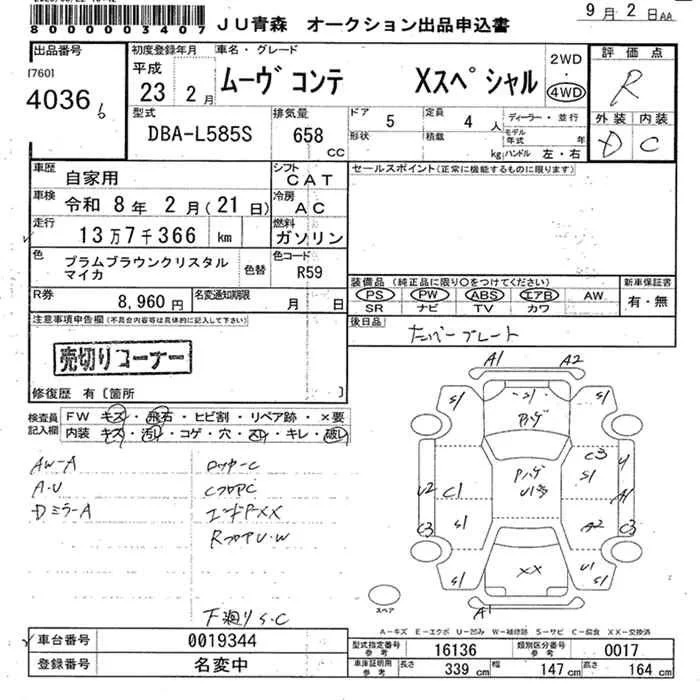 800000003407
JU青森 オークション出品申込書
9月2日AA
出品番号
[760]
4036
初度登録年月
平成
23 2月
車名・グレード
ムーヴ コンテ Xスペシャル
2WD
・
4WD
評価点
R
外装 内装
D C
型式
DBA-L585S
排気量
658
CC
ドア
5
定員
4 人
形状
積載
kg
ディーラー・並行
モデル年式 年
ハンドル 左・右
車歴
自家用
シフト
CAT
車検
令和 8年 2月(21日)
冷房
AC
走行
13万7千366 km
燃料
ガソリン
色
プラムブラウンクリスタル
マイカ
色替
色コード
R59
R券
8,960円
名変通知期限
月 日
セールスポイント(正常に機能するものに限ります)
装備品(純正品に限り〇をつけてください)
PS PW ABS エアB AW
SR ナビ TV カワ
新車保証書
有・無
後日品
ナンバープレート
注意事項申告欄(不具合内容等は具体的に記入して下さい)
売切りコーナー
修復歴 有〔箇所 〕
検査員
記入欄
FW キズ・飛石・ヒビ割・リペア跡・×要
内装 キズ・汚レ・コゲ・穴・スレ・キレ・破レ
AW-A
A・U
DミラーA
ロッカーC
CフロアC
エンドPXX
RフロアU・W
下廻りS・C
A1 A2
S1 S1
Pハゲ
C3
S1
Pハゲ
U2 C1
A1
C3 S1
A2
C3
XX
U1
S1 S1
A1
スペア
A-キズ E-エクボ U-凹み W-補修跡 S-サビ C-腐食 XX-交換済
車台番号
0019344
登録番号
名変中
型式指定番号
参考
16136
類別区分番号
参考
0017
車庫証明用
参考
長さ
339 cm
幅
147 cm
高さ
164 cm